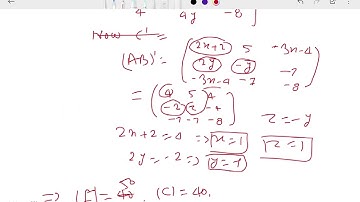 4 4y -8 ]
Now C'
(AB)' = ( 2x+2 5 -3x-4
2y -y -7
-3x-4 -7 -8 )
= ( 4 5 4
-2 2 -4
-7 -7 -8 ) z = -y
2x+2 = 4 => x=1 z=1
2y = -2 => y=-1
=> = 40, |C| = 40,